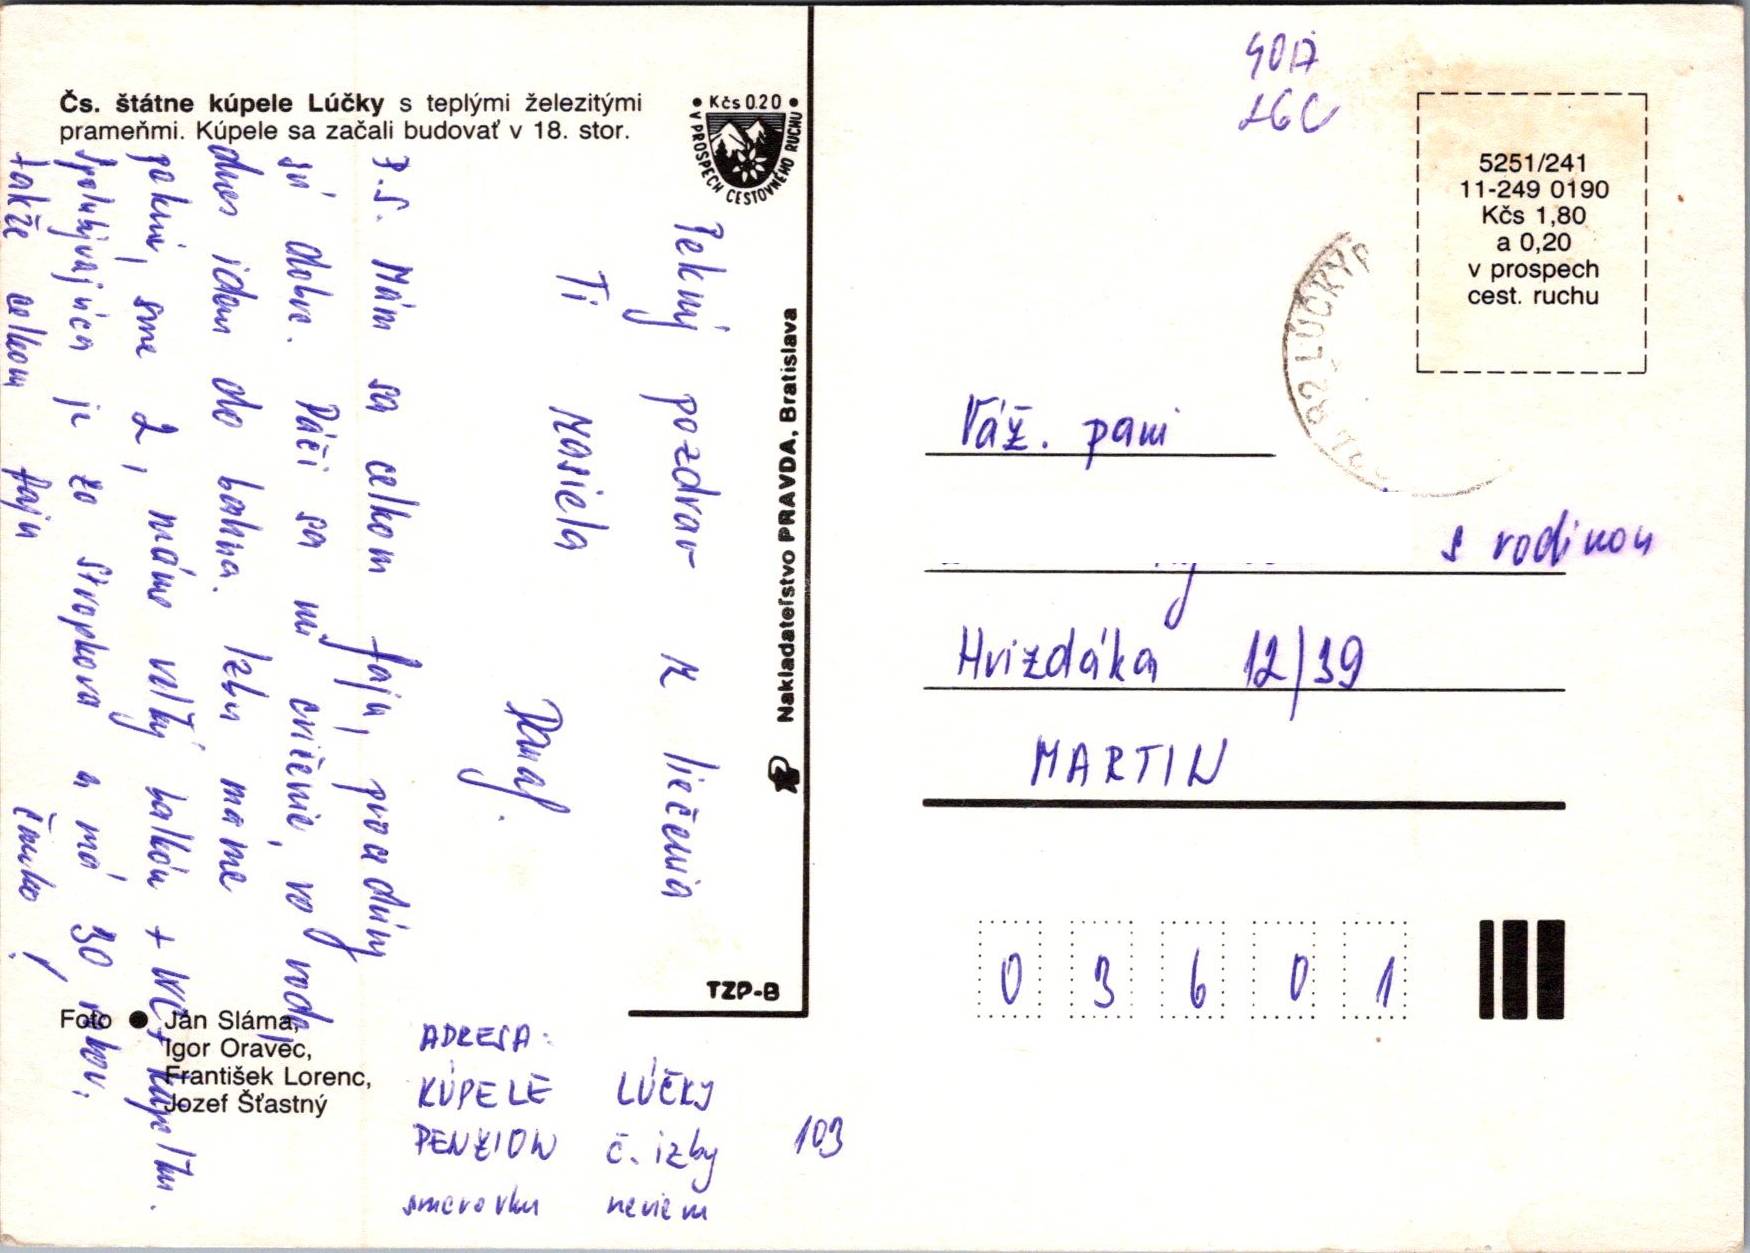 Čs. štátne kúpele Lúčky s teplými železitými
prameňmi. Kúpele sa začali budovať v 18. stor.
• Kčs 0.20 •
V PROSPECH CESTOVNÉHO RUCHU
Pekný pozdrav z liečenia
Ti posiela
P.S. Mám sa celkom fajn,
sú dobré. Páči sa mi cvičenie, vo vode
dnes idem do bahna. Izbu máme
peknú, sme 2, máme veľký balkón + WC + kúpeľňu.
Spolubývajúca je zo Stropkova a má 30 rokov,
takže celkom fajn
Nakladateľstvo PRAVDA, Bratislava
TZP-B
Foto ● Ján Sláma,
Igor Oravec,
František Lorenc,
Jozef Šťastný
ADRESA:
KÚPELE LÚČKY
PENZION č. izby 103
smerovku neviem
5251/241
11-249 0190
Kčs 1,80
a 0,20
v prospech
cest. ruchu
82 LÚČKY P
Váž. pani
s rodinou
Hvizdáka 12/39
MARTIN
0 3 6 0 1